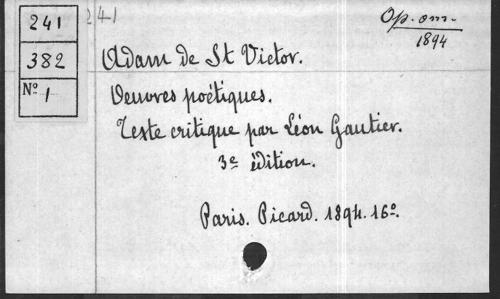 241
241
Op. om.
1894
382
Nº 1
Adam de St Victor.
Oeuvres poétiques.
Texte critique par Léon Gautier.
3e édition.
Paris. Picard. 1894. 16º.